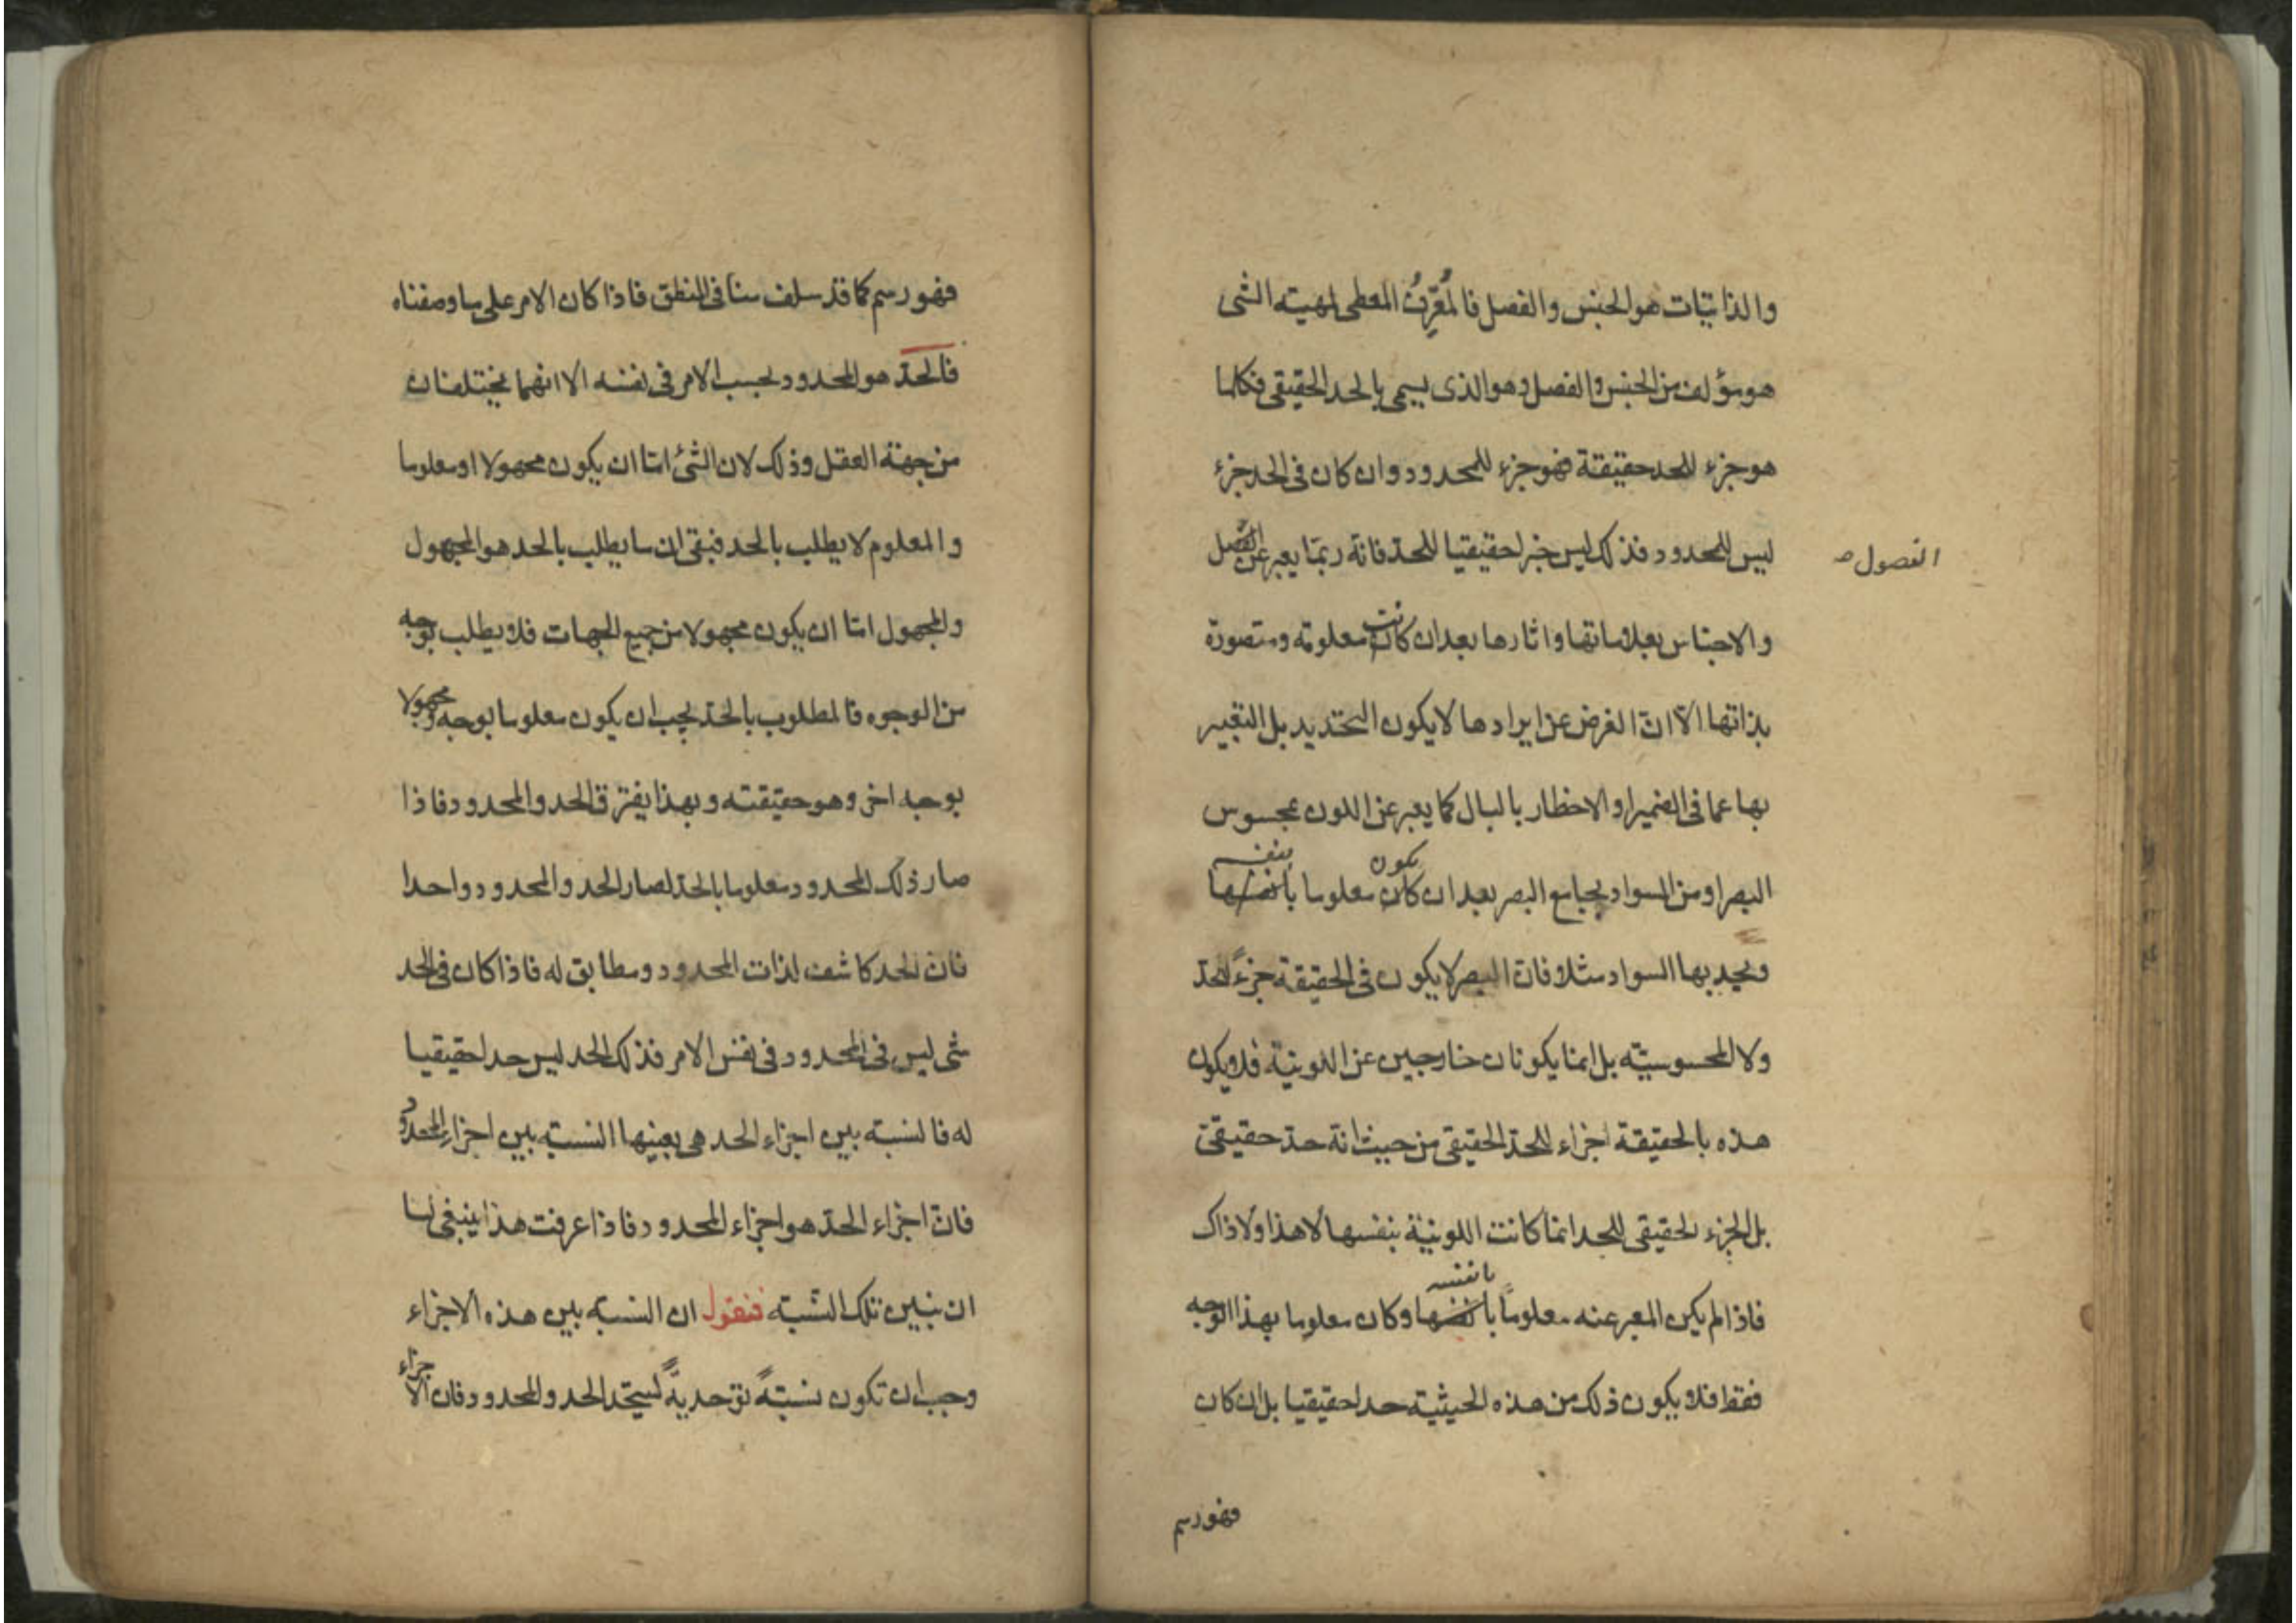 والذاتيات هو الجنس والفصل فالمُعَرِّفُ المعطى لمهيته الشى
هو مؤلف من الجنس والفصل وهو الذى يسمى بالحد الحقيقى فكلما
هو جزء للحد حقيقة فهو جزء للمحدود وان كان فى الحد جزء
ليس للمحدود فذلك ليس جزءا حقيقيا للحدّ فانّه ربّما يعبر عن الفصل
الفصول صـ
والاجناس بعلاماتها واثارها بعد ان كانت معلومة ومتصورة
بذاتها الّا انّ الغرض عن ايرادها لا يكون التحديد بل التعبير
بها عما فى الضمير او الاخطار بالبال كما يعبر عن اللون بمحسوس
البصر او من السواد بجامع البصر بعد ان كان يكون معلوما بانفسها بنفسه
ويحد بها السواد مثلا فانّ البصر لا يكون فى الحقيقة جزءً لحدّ
ولا المحسوسيّه بل انما يكونان خارجين عن اللونيّة فلا يكون
هذه بالحقيقة اجزاء للحدّ الحقيقى من حيث انّه حدّ حقيقىّ
بل الجزء الحقيقى للحد انمّا كانت اللونيّة بنفسها لا هذا ولا ذاك
فاذا لم يكن المعبر عنه معلومًا بانفسها بانفسه وكان معلوما بهذا الوجه
فقط فلا يكون ذلك من هذه الحيثية حدا حقيقيا بل ان كان
فهو رسم
فهو رسم كما قد سلف منا فى المنطق فاذا كان الامر على ما وصفناه
فالحدّ هو المحدود بحسب الامر فى نفسه الا انهما يختلفان
من جهة العقل وذلك لان الشئ امّا ان يكون مجهولا او معلوما
والمعلوم لا يطلب بالحد فبقى ان ما يطلب بالحد هو المجهول
والمجهول امّا ان يكون مجهولا من جميع الجهات فلا يطلب بوجه
من الوجوه فالمطلوب بالحدّ يجب ان يكون معلوما بوجه ومجهولا
بوجه اخر وهو حقيقته وبهذا يفترق الحد والمحدود فاذا
صار ذلك المحدود معلوما بالحدّ لصار الحد والمحدود واحدا
فانّ الحد كاشف لذات المحدود ومطابق له فاذا كان فى الحد
شى ليس فى المحدود فى نفس الامر فذلك الحد ليس حدا حقيقيا
له فالنسبة بين اجزاء الحد هى بعينها النسبة بين اجزاء المحدود
فانّ اجزاء الحدّ هو اجزاء المحدود فاذا عرفت هذا ينبغى لنا
ان نبين تلك النسّبة فنقول ان النسبة بين هذه الاجزاء
وجب ان تكون نسبتةً توحديةً ليتحد الحد والمحدود فان الاجزاء